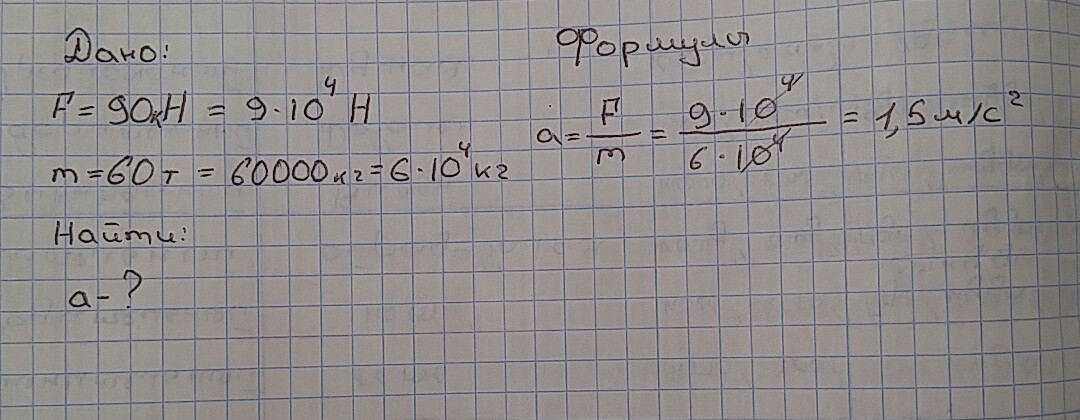 Дано:
F = 90кН = 9·10⁴ Н
m = 60т = 60000кг = 6·10⁴ кг
Найти:
a - ?
Формулы
a = F/m = 9·10⁴/6·10⁴ = 1,5 м/с²